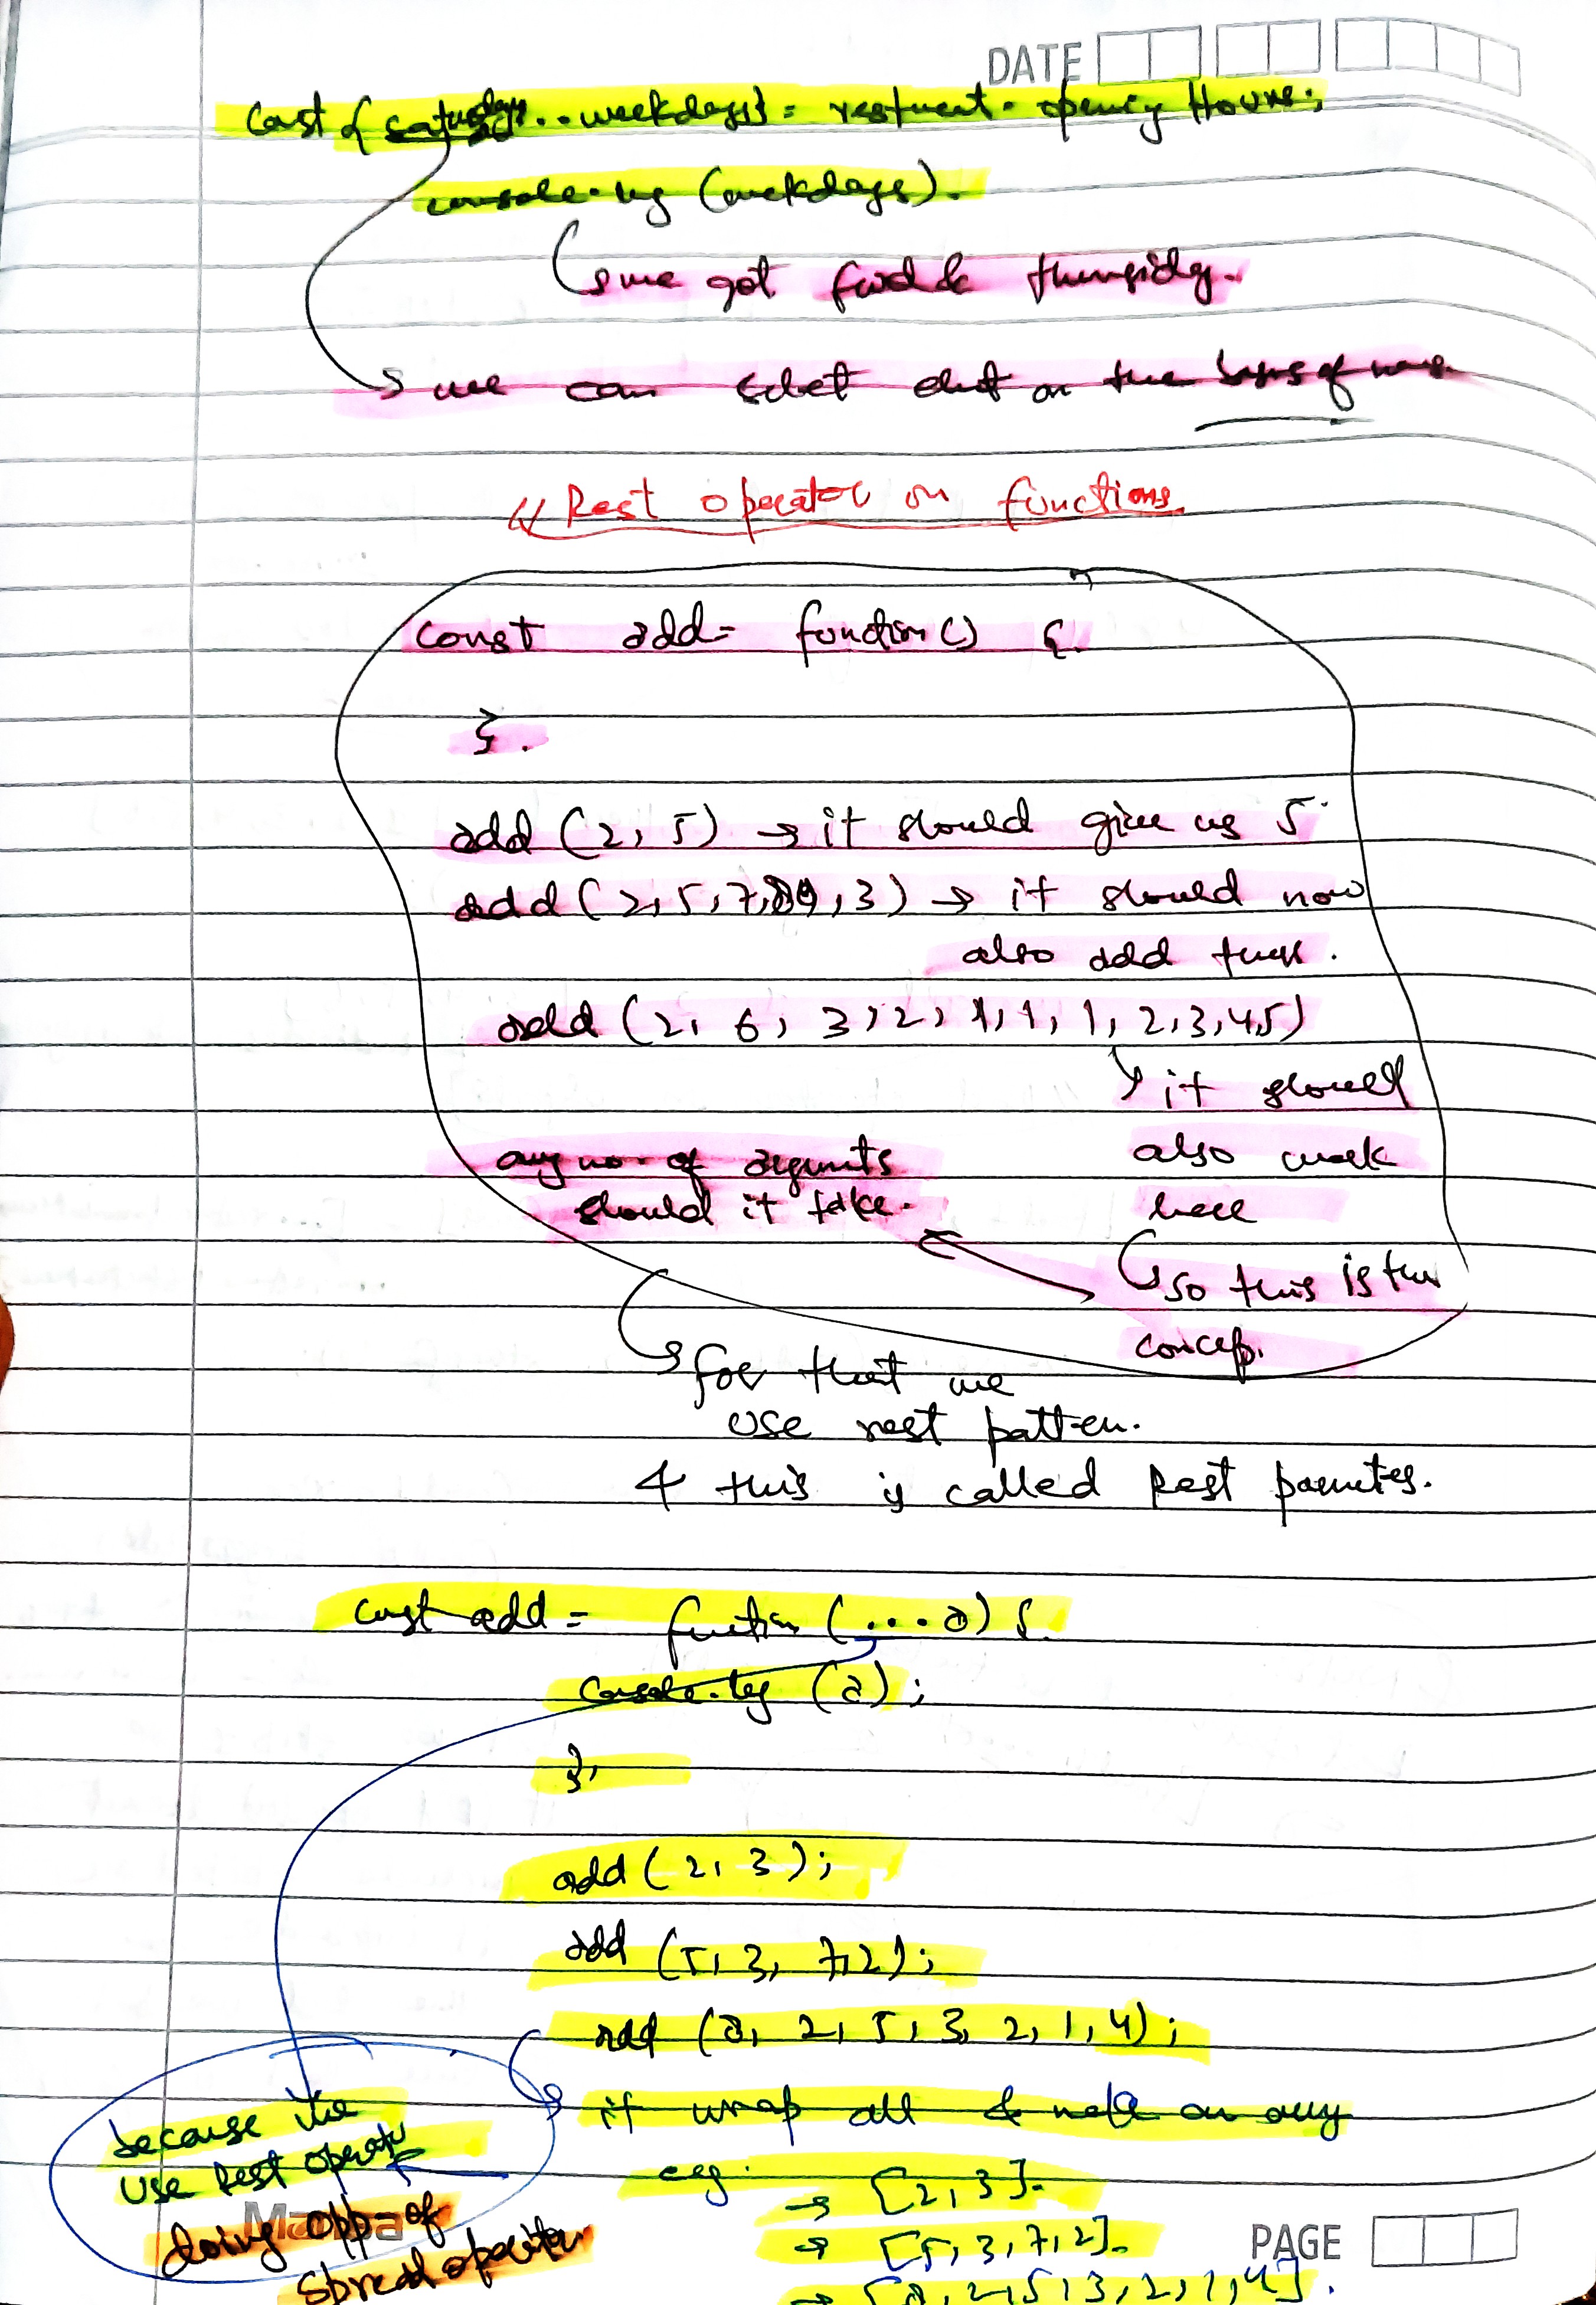 DATE
const { saturday, ...weekdays} = restuent.opening Hours;
console.log (weekdays).
we got fwd & thursday.
we can selet out on the basis of name
Rest operator on functions
const add = function() {
}.
add (2, 5) → it should give us 5
add (2,5,7,89,3) → it should now
also add these.
add (2, 6, 3, 2, 1, 1, 1, 2, 3, 4, 5)
it should
any no. of argumts
also work
should it take.
here
so this is the
concep.
for that we
use rest patten.
& this is called Rest paramtes.
const add = function (...a) {
console.log (a);
};
add (2, 3);
add (5, 3, 7, 2);
add (8, 2, 5, 3, 2, 1, 4);
it wrap all & make an array
because we
use Rest operato
doing opp of
spread operator
eg.
→ [2, 3].
→ [5, 3, 7, 2].
→ [8, 2, 5, 3, 2, 1, 4].
PAGE